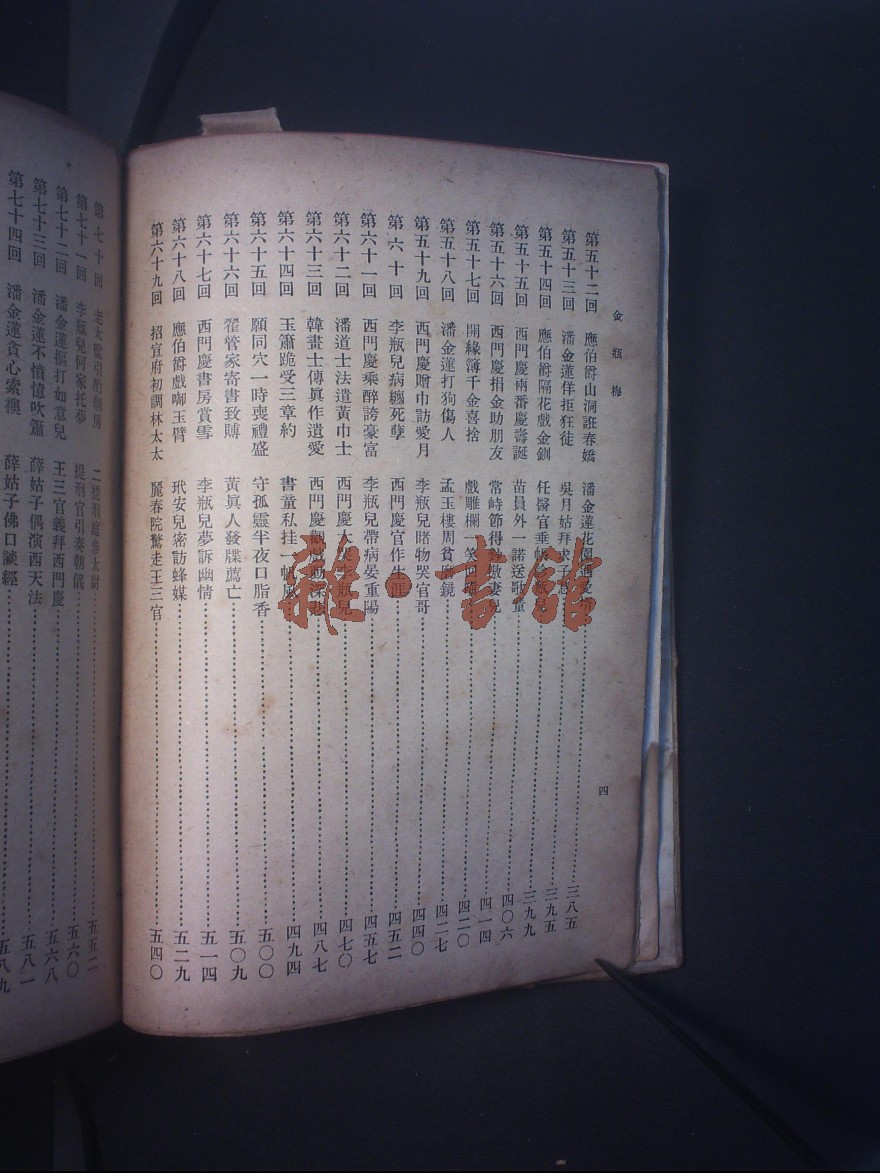 金瓶梅
四
第五十二回 應伯爵山洞戲春嬌 潘金蓮花園 三八五
第五十三回 潘金蓮佯拒狂徒 吳月姑拜求子息 三九五
第五十四回 應伯爵隔花戲金釧 任醫官垂帳 三九九
第五十五回 西門慶兩番慶壽誕 苗員外一諾送歌童 四〇六
第五十六回 西門慶捐金助朋友 常峙節得鈔傲妻兒 四一四
第五十七回 開緣簿千金喜捨 戲雕欄一笑回嗔 四二〇
第五十八回 潘金蓮打狗傷人 孟玉樓周貧磨鏡 四二七
第五十九回 西門慶贈巾訪愛月 李瓶兒賭物哭官哥 四四〇
第六十回 李瓶兒病纏死孽 西門慶官作生涯 四五二
第六十一回 西門慶乘醉誇豪富 李瓶兒帶病晏重陽 四五七
第六十二回 潘道士法遣黃巾士 西門慶大哭李瓶兒 四七〇
第六十三回 韓畫士傳眞作遺愛 西門慶觀戲動深悲 四八七
第六十四回 玉簫跪受三章約 書童私挂一帆風 四九四
第六十五回 願同穴一時喪禮盛 守孤靈半夜口脂香 五〇〇
第六十六回 翟管家寄書致賻 黃眞人發牒薦亡 五〇九
第六十七回 西門慶書房賞雪 李瓶兒夢訴幽情 五一四
第六十八回 應伯爵戲啣玉臂 玳安兒密訪蜂媒 五二九
第六十九回 招宣府初調林太太 麗春院驚走王三官 五四〇
第七十回 老太監引酌朝房 二提刑庭參太尉 五五二
第七十一回 李瓶兒何家托夢 提刑官引奏朝儀 五六〇
第七十二回 潘金蓮摳打如意兒 王三官義拜西門慶 五六八
第七十三回 潘金蓮不憤憶吹簫 薛姑子偶演西天法 五八一
第七十四回 潘金蓮貪心索襖 薛姑子佛口談經 五八九
雜·書館